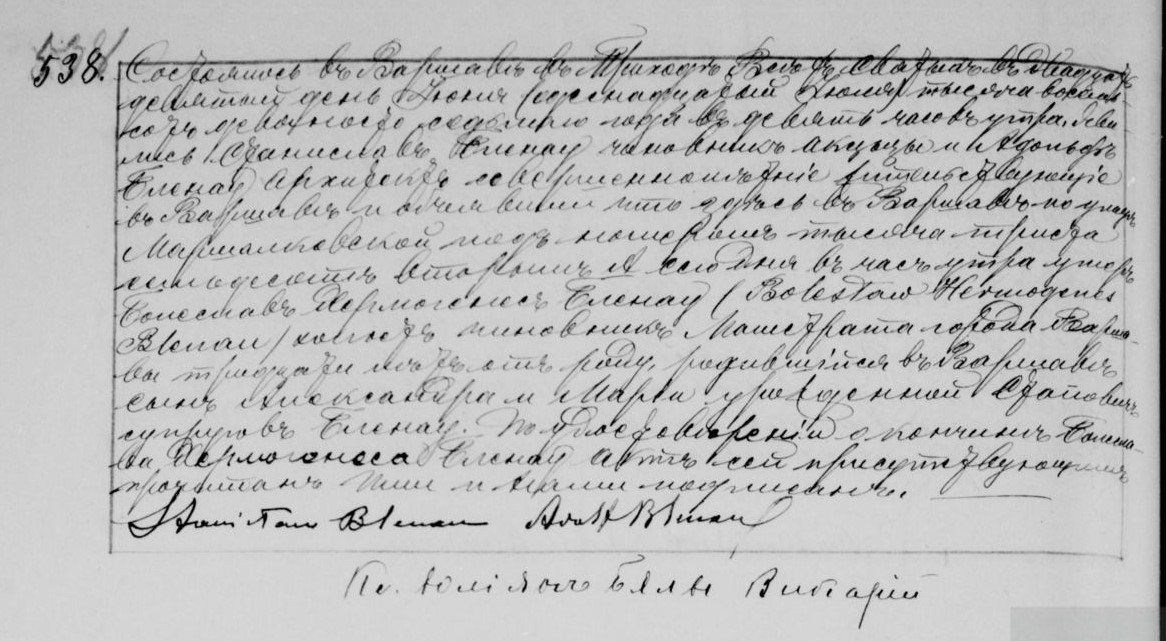 538.
Состоялось въ Варшавѣ въ Приходѣ Всѣхъ Святыхъ въ двадцать
девятый день Іюня (одинадцатый Іюля) тысяча восемь-
сотъ девяносто седьмого года въ девять часовъ утра. Яви-
лись Станиславъ Бленау чиновникъ акцызы и Адольфъ
Бленау Архитектъ совершеннолѣтніе жительствующіе
въ Варшавѣ и объявили что здѣсь въ Варшавѣ по улицѣ
Маршалковской подъ номеромъ тысяча триста
семьдесятъ вторымъ А сего дня въ часъ утра умеръ
Болеславъ Хермогенесъ Бленау (Bolesław Hermogenes
Blenau) холостъ чиновникъ Магистрата города Варша-
вы тридцати лѣтъ отъ роду, родившійся въ Варшавѣ
сынъ Александра и Маріи урожденной
супруговъ Бленау. По удостовѣреніи о кончинѣ Болесла-
ва Хермогенеса Бленау актъ сей присутствующимъ
прочитанъ ими и Нами подписанъ.
Stanisław Blenau Adolf Blenau
Кс. Викарій